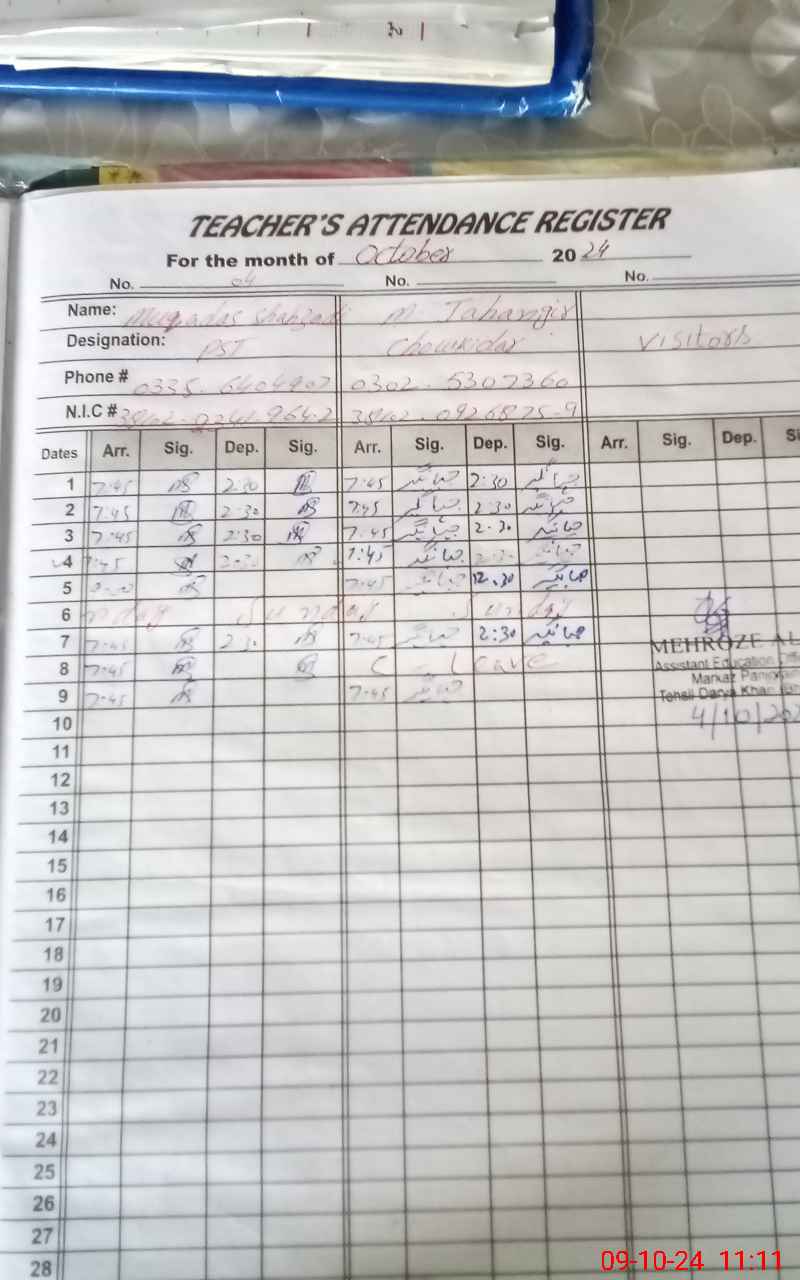 TEACHER'S ATTENDANCE REGISTER
For the month of October 2024
No. 04 No. No.
Name: Muqadas Shahzadi M. Jahangir
Designation: PST Chowkidar Visitors
Phone # 0335-6404907 0302-5307360
N.I.C #
Dates Arr. Sig. Dep. Sig. Arr. Sig. Dep. Sig. Arr. Sig. Dep.
1 7:45 2:30 7:45 جہانگیر 2:30 جہانگیر
2 7:45 2:30 7:45 جہانگیر 2:30 جہانگیر
3 7:45 2:30 7:45 جہانگیر 2:30 جہانگیر
4 7:45 2:30 7:45 جہانگیر 2:30 جہانگیر
5 7:45 جہانگیر 12:30 جہانگیر
6 Sunday Sunday
7 7:45 2:30 7:45 جہانگیر 2:30 جہانگیر
MEHROZE
8 7:45 C - Leave
Assistant Education
Markaz
9 7:45 7:45 جہانگیر
Tehsil Darya Khan
10
4/10/202
11
12
13
14
15
16
17
18
19
20
21
22
23
24
25
26
27
28
09-10-24 11:11